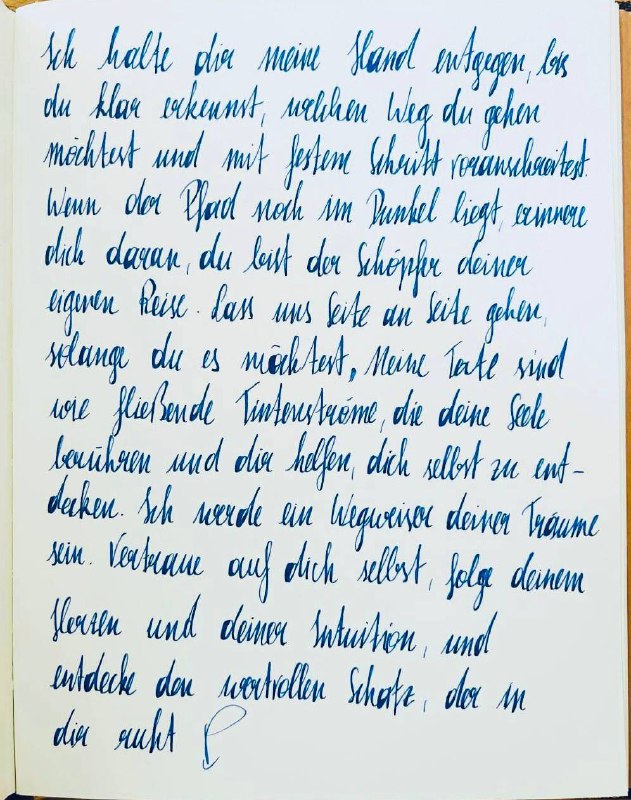 Ich halte dir meine Hand entgegen, bis
du klar erkennst, welchen Weg du gehen
möchtest und mit festem Schritt voranschreitest.
Wenn der Pfad noch im Dunkel liegt, erinnere
dich daran, du bist der Schöpfer deiner
eigenen Reise. Lass uns Seite an Seite gehen,
solange du es möchtest. Meine Texte sind
wie fließende Tintenströme, die deine Seele
berühren und dir helfen, dich selbst zu ent-
decken. Ich werde ein Wegweiser deiner Träume
sein. Vertraue auf dich selbst, folge deinem
Herzen und deiner Intuition, und
entdecke den wertvollen Schatz, der in
dir ruht